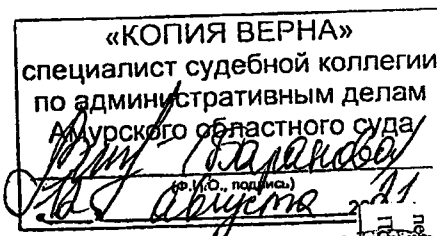 «КОПИЯ ВЕРНА»
специалист судебной коллегии
по административным делам
Амурского областного суда
Баранова
(Ф.И.О., подпись)
12 августа 2021